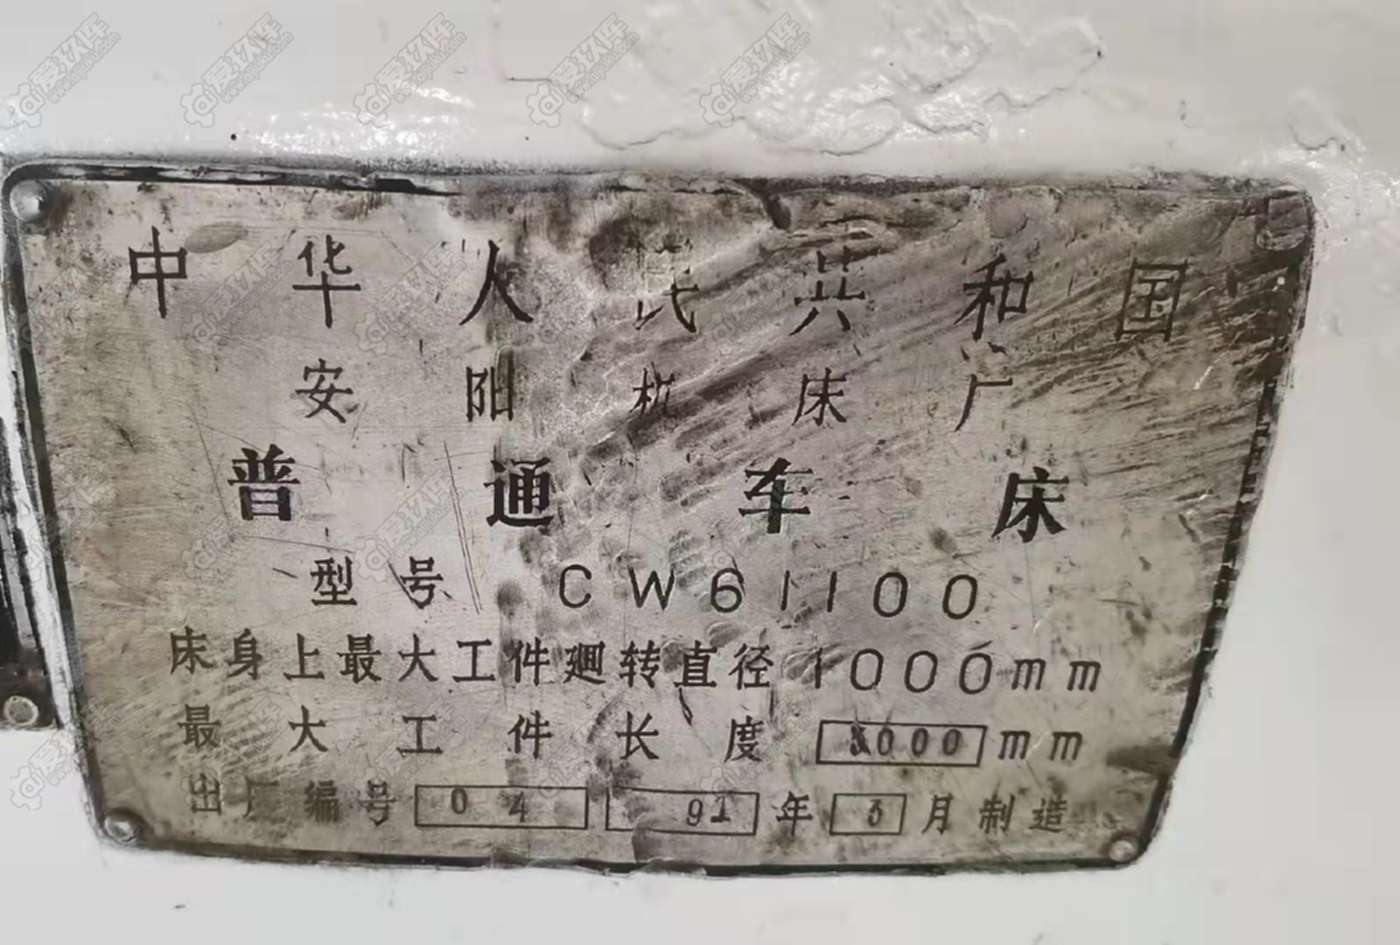 中华人民共和国
安阳机床厂
普通车床
型号 CW61100
床身上最大工件廻转直径 1000mm
最大工件长度 000mm
出厂编号 04 91年 月制造